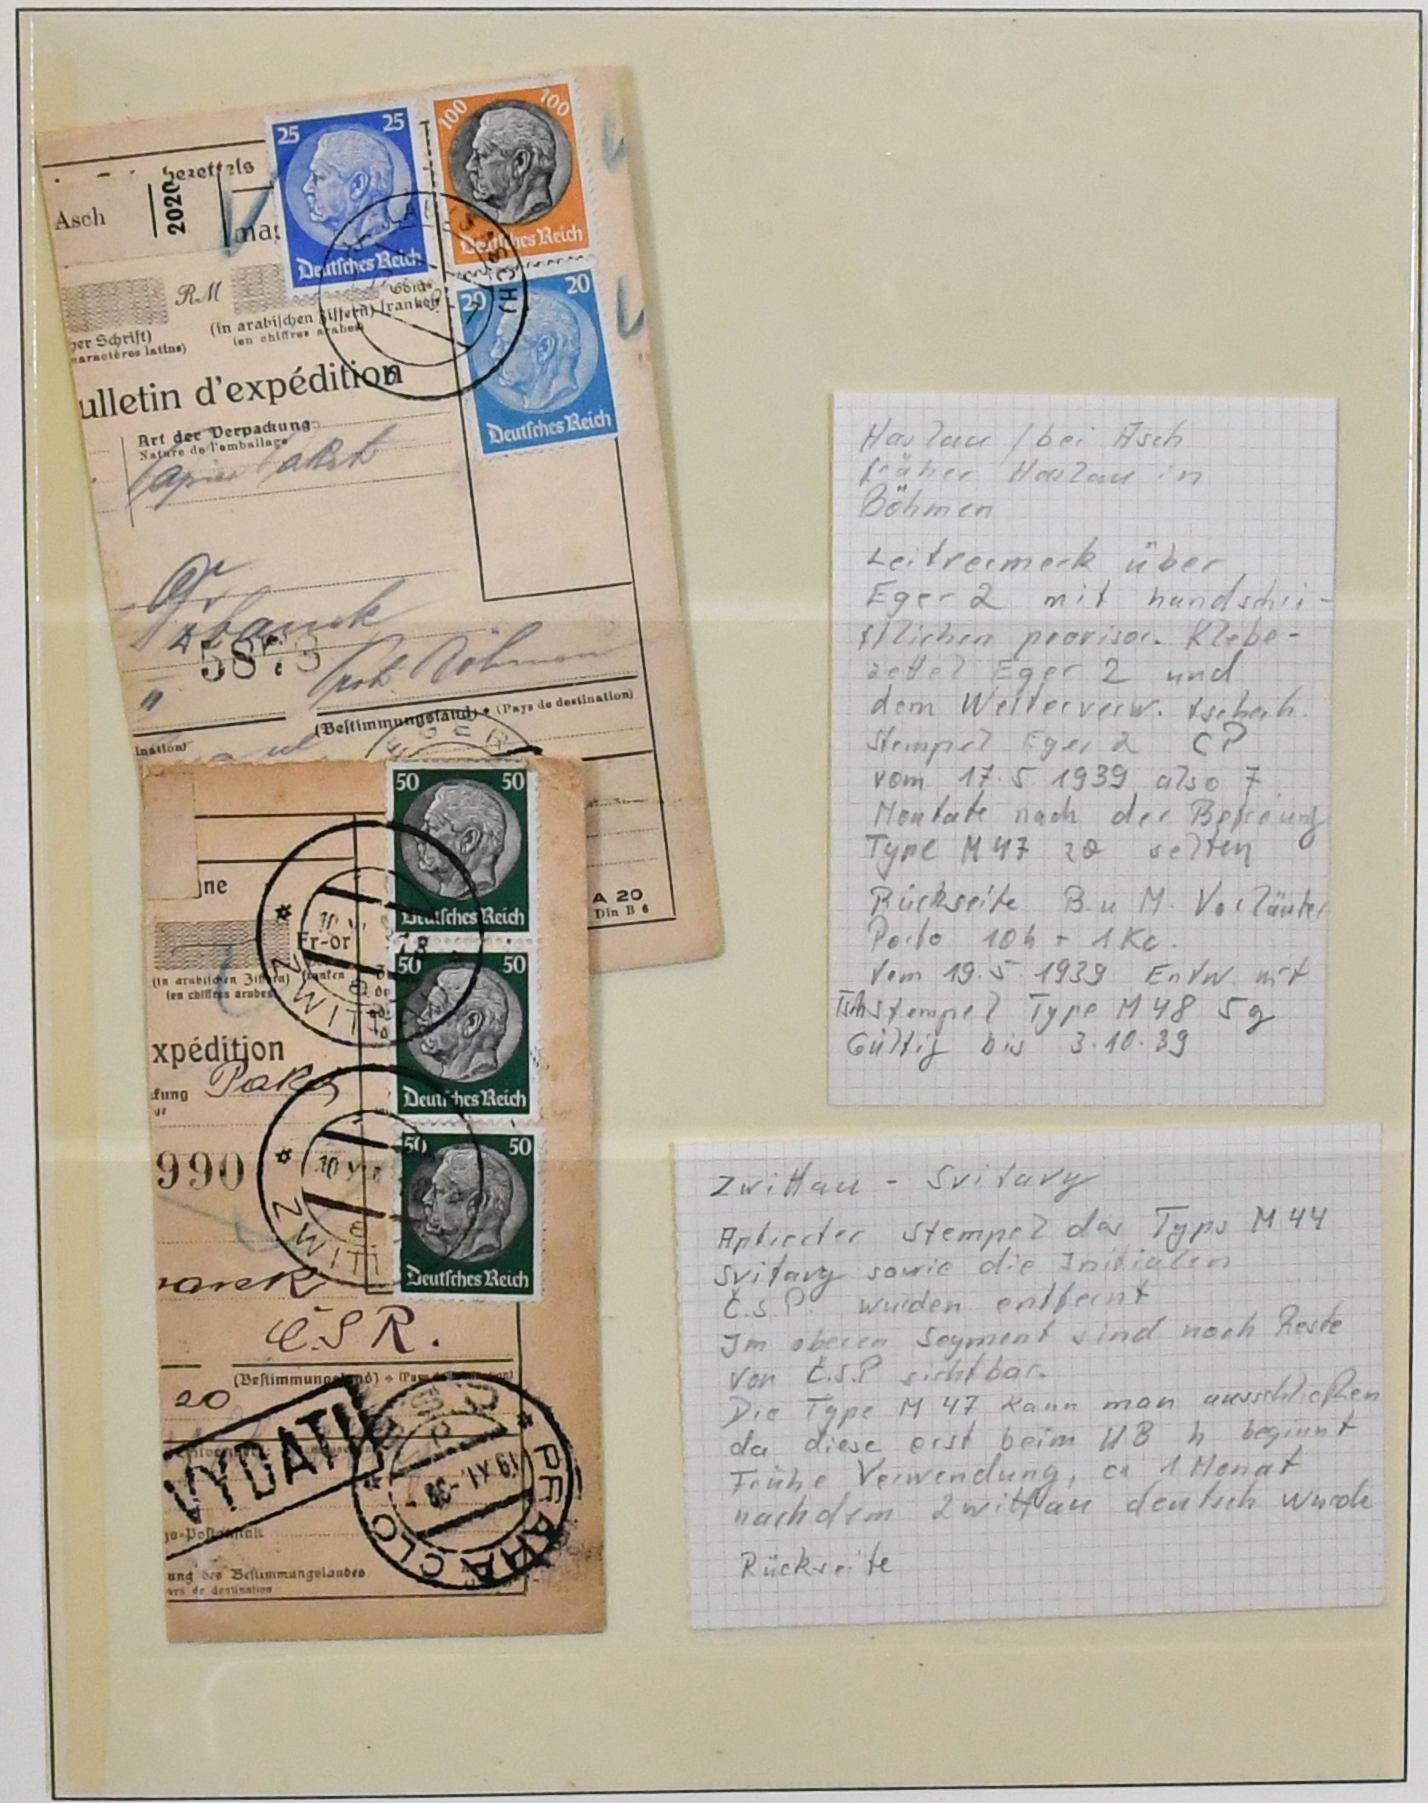 25 25
100 100
Deutsches Reich
Deutsches Reich
20 20
Deutsches Reich
Asch
2020
RM
(in arabischen Ziffern)
franken
(en chiffres arabes)
her Schrift)
naractères latins)
ulletin d'expédition
Art der Verpackung
Nature de l'emballage
5873
(Bestimmungsland) • (Pays de destination)
ination)
EGER
A 20
Din B 6
50 50
Deutsches Reich
50 50
Deutsches Reich
50 50
Deutsches Reich
ne
Fr-or
franken
(in arabischen Ziffern)
(en chiffres arabes)
xpédition
fung
Paket
990
ZWITT
ZWITT
Č.S.R.
(Bestimmungsland) • (Pays de destination)
20
VYDATI
19.XI.-38.-
* PRAHA CLO *
ung des Bestimmungslandes
ers de destination
Haslau / bei Asch
früher Haslau in
Böhmen
Leitvermerk über
Eger 2 mit handschri-
ftlichen provisor. Klebe-
zettel Eger 2 und
dem Weiterverw. tschech.
Stempel Eger 2 CP
vom 17.5 1939 also 7
Montate nach der Befreiung
Type M 47 selten
Rückseite B. u M. Vorläufer
Porto 10 h + 1 Kc.
vom 19.5 1939 Entw. mit
Tsch Stempel Type M 48 5g
Gültig bis 3.10.39
Zwittau - Svitavy
Aptierter Stempel des Typs M 44
Svitavy sowie die Initialen
Č.S.P. wurden entfernt
Im oberen Segment sind noch Reste
von Č.S.P sichtbar.
Die Type M 47 kann man ausschließen
da diese erst beim UB h beginnt
Frühe Verwendung, ca 1 Monat
nachdem Zwittau deutsch wurde
Rückseite